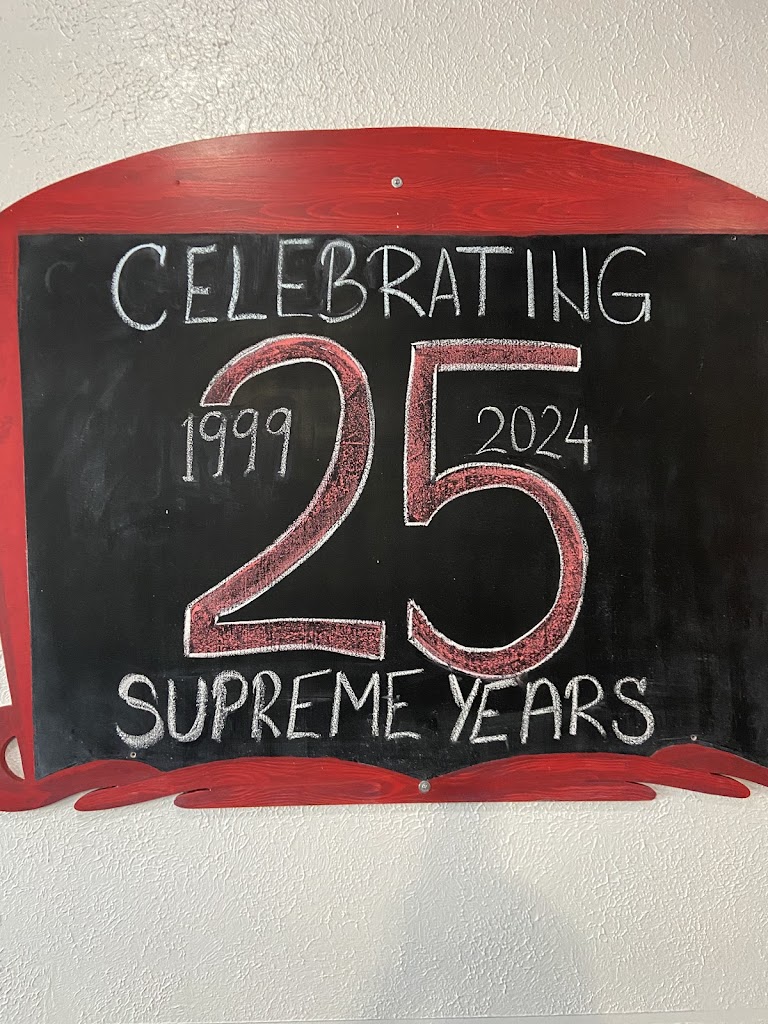 CELEBRATING
25
1999 2024
SUPREME YEARS